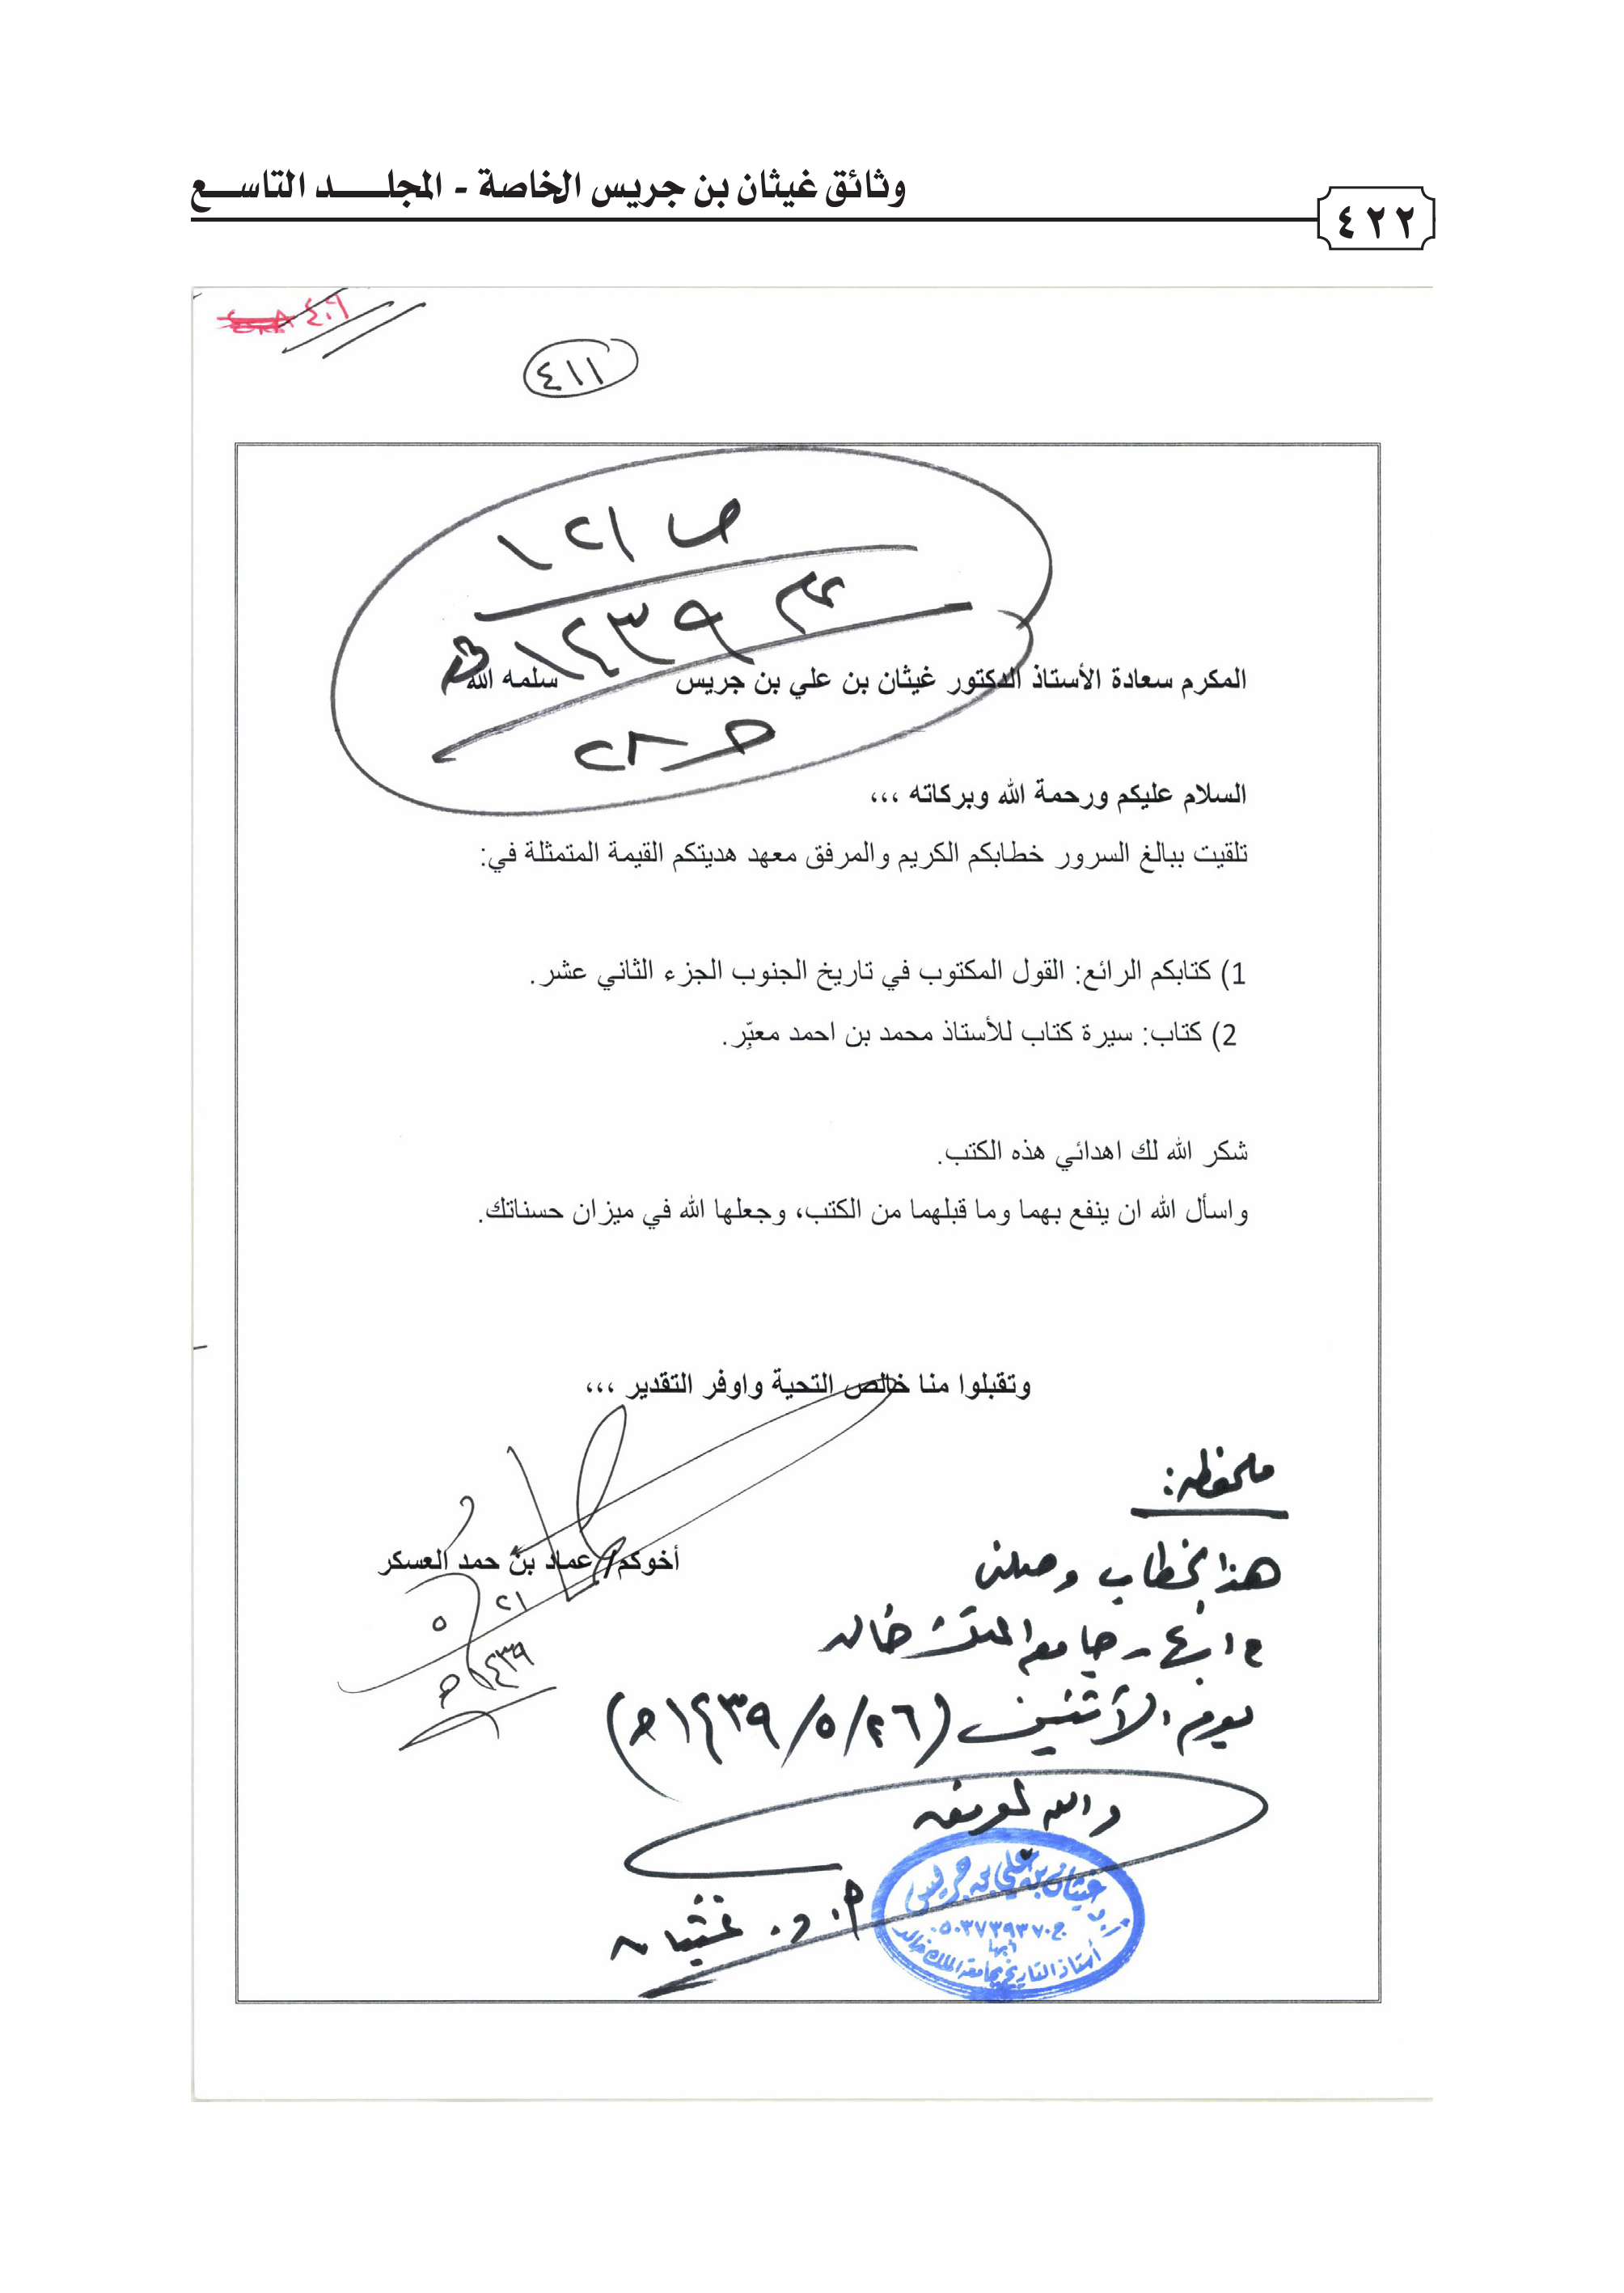 وثائق غيثان بن جريس الخاصة - المجلـــــد التاســـع
٤٢٢
٤٠٦
٤١١
ص ١٢١
عام ١٤٣٩هـ
المكرم سعادة الأستاذ الدكتور غيثان بن علي بن جريس سلمه الله
السلام عليكم ورحمة الله وبركاته ،،،
تلقيت ببالغ السرور خطابكم الكريم والمرفق معهد هديتكم القيمة المتمثلة في:
1) كتابكم الرائع: القول المكتوب في تاريخ الجنوب الجزء الثاني عشر.
2) كتاب: سيرة كتاب للأستاذ محمد بن احمد معبِّر.
شكر الله لك اهدائي هذه الكتب.
واسأل الله ان ينفع بهما وما قبلهما من الكتب، وجعلها الله في ميزان حسناتك.
وتقبلوا منا خالص التحية واوفر التقدير ،،،
أخوكم/ عماد بن حمد العسكر
٢١
٥
١٤٣٩هـ
ملحوظة:
هذا الخطاب وصلني
جامعة الملك خالد
يوم الأثنين (٢٦/٥/١٤٣٩هـ)
والله الموفق
أ. د. غيثان
أ.د غيثان بن علي بن جريس
ج٠٥٠٣٧٣٩٣٧٠
أبها
أستاذ التاريخ بجامعة الملك خالد